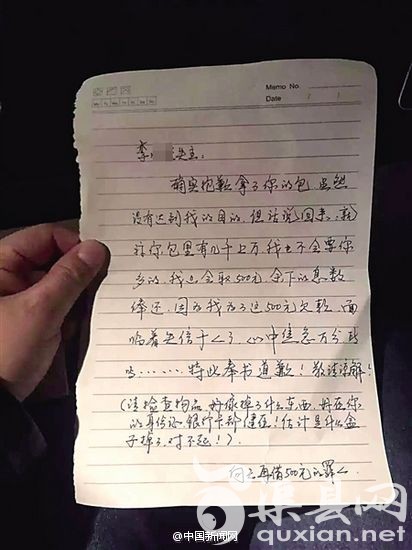 Memo No.
Date / /
李 失主：
确实抱歉拿了你的包。虽然
没有达到我的目的，但话说回来，就
算你包里有几千上万，我也不会要你
多的，我只会取500元，余下的悉数
俸还，因为我为了这500元欠款，面
临着失信于人了，心中焦急万分
呜……特此奉书道歉！敬请谅解！
(请检查物品，好像掉了什么东西，好在你
的身份证、银行卡都健在！估计是什么盒
子掉了，对不起！)
向天再借500元的罪人
@中国新闻网
渠县网
quxian.net